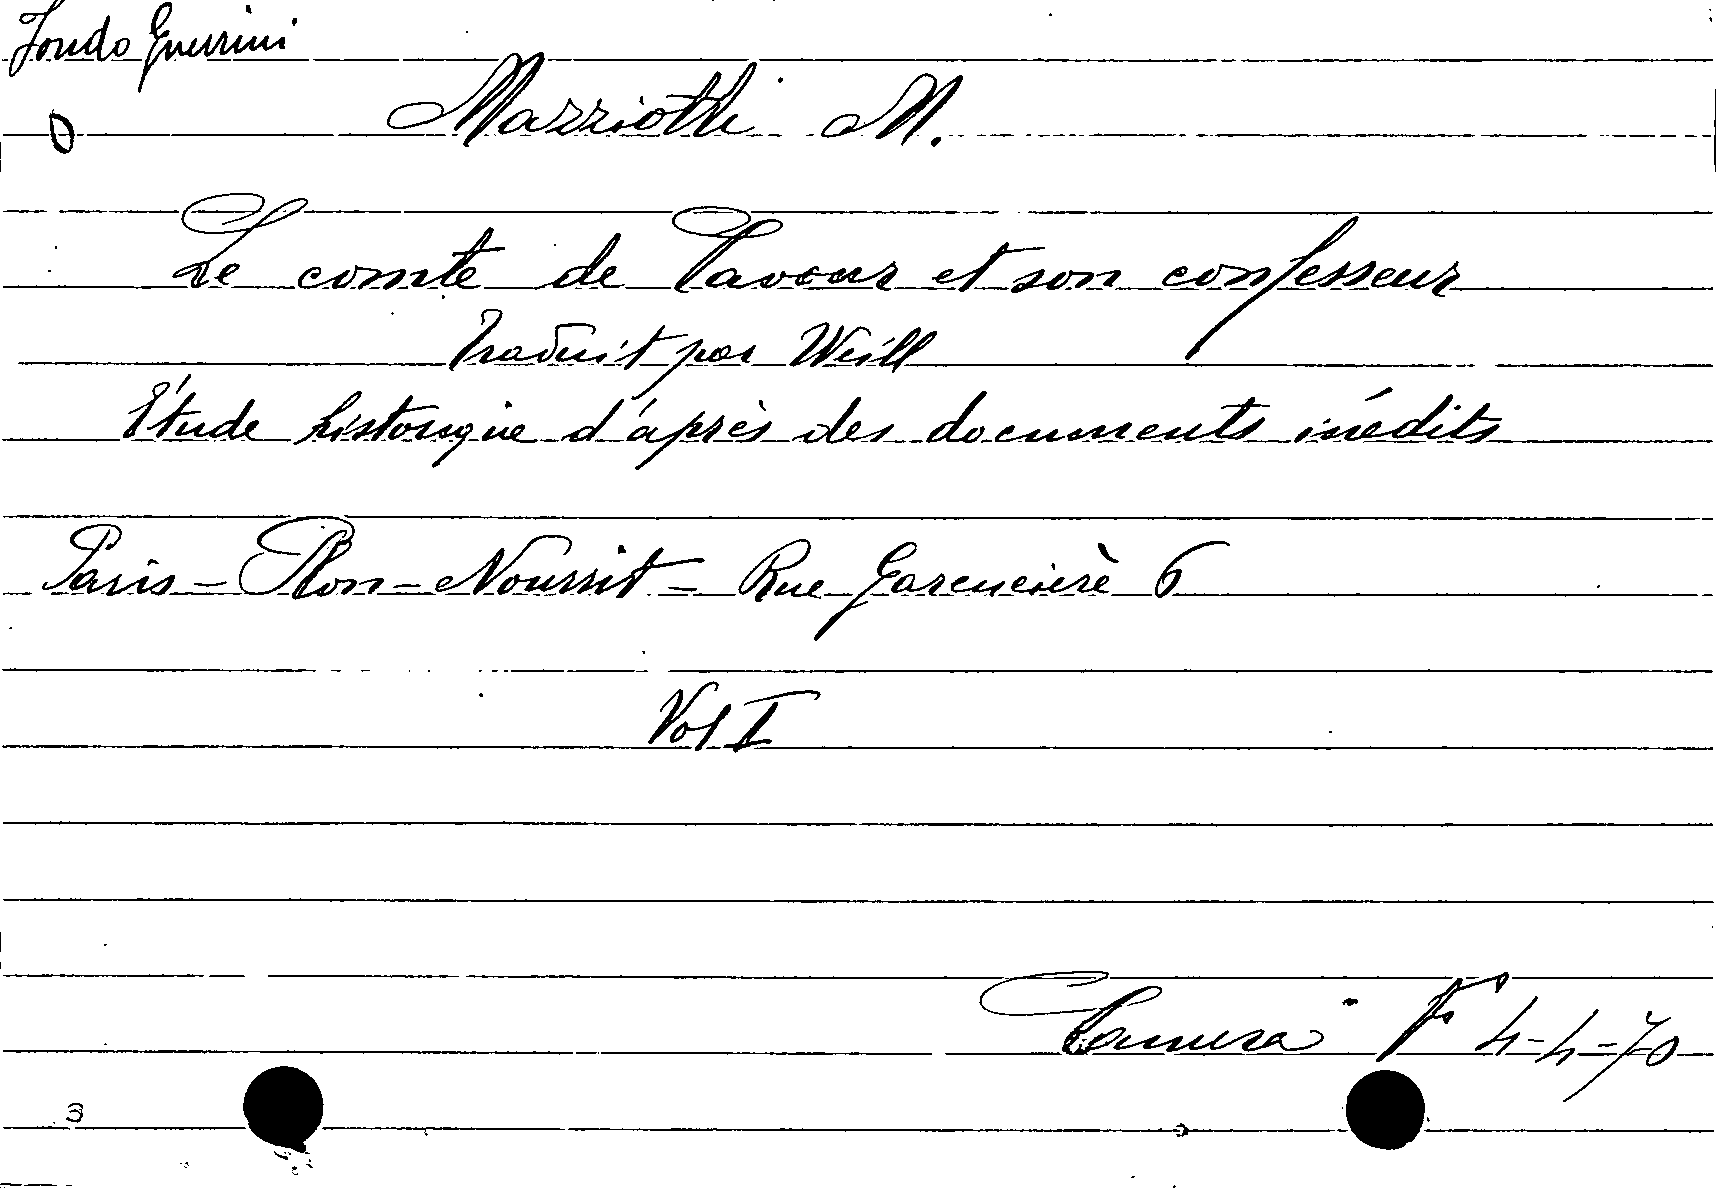 Fondo Guerrini
Mazziotti M.
Le comte de Cavour et son confesseur
Traduit par Weill
Étude historique d'après des documents inédits
Paris - Plon - Nourrit - Rue Garencierè 6
Vol I
Camera 4-4-70
3